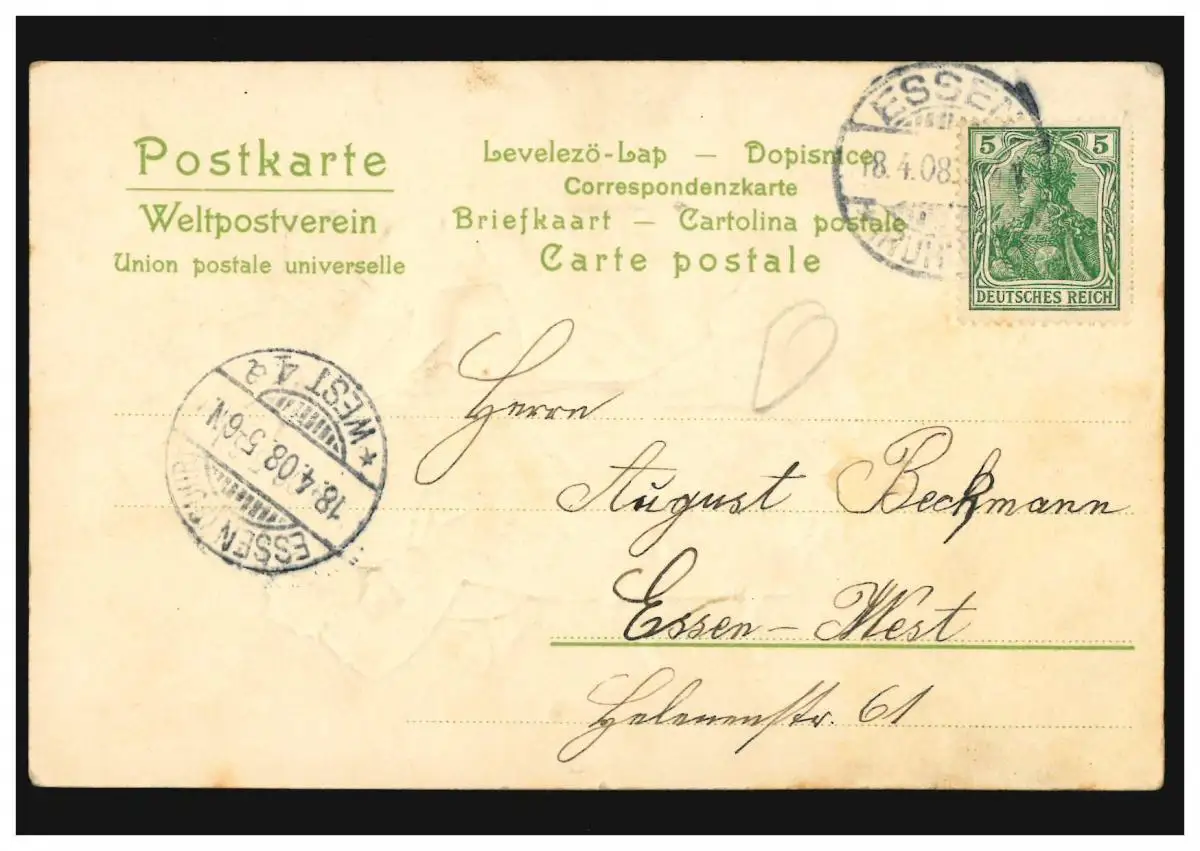 Postkarte
Weltpostverein
Union postale universelle
Levelezö-Lap — Dopisnice
Correspondenzkarte
Briefkaart — Cartolina postale
Carte postale
ESSEN
18.4.08
5 5
DEUTSCHES REICH
* WEST 4 a
18.4.08.5-6N.
ESSEN (RUHR)
Herrn
August Beckmann
Essen-West
Helenenstr. 61